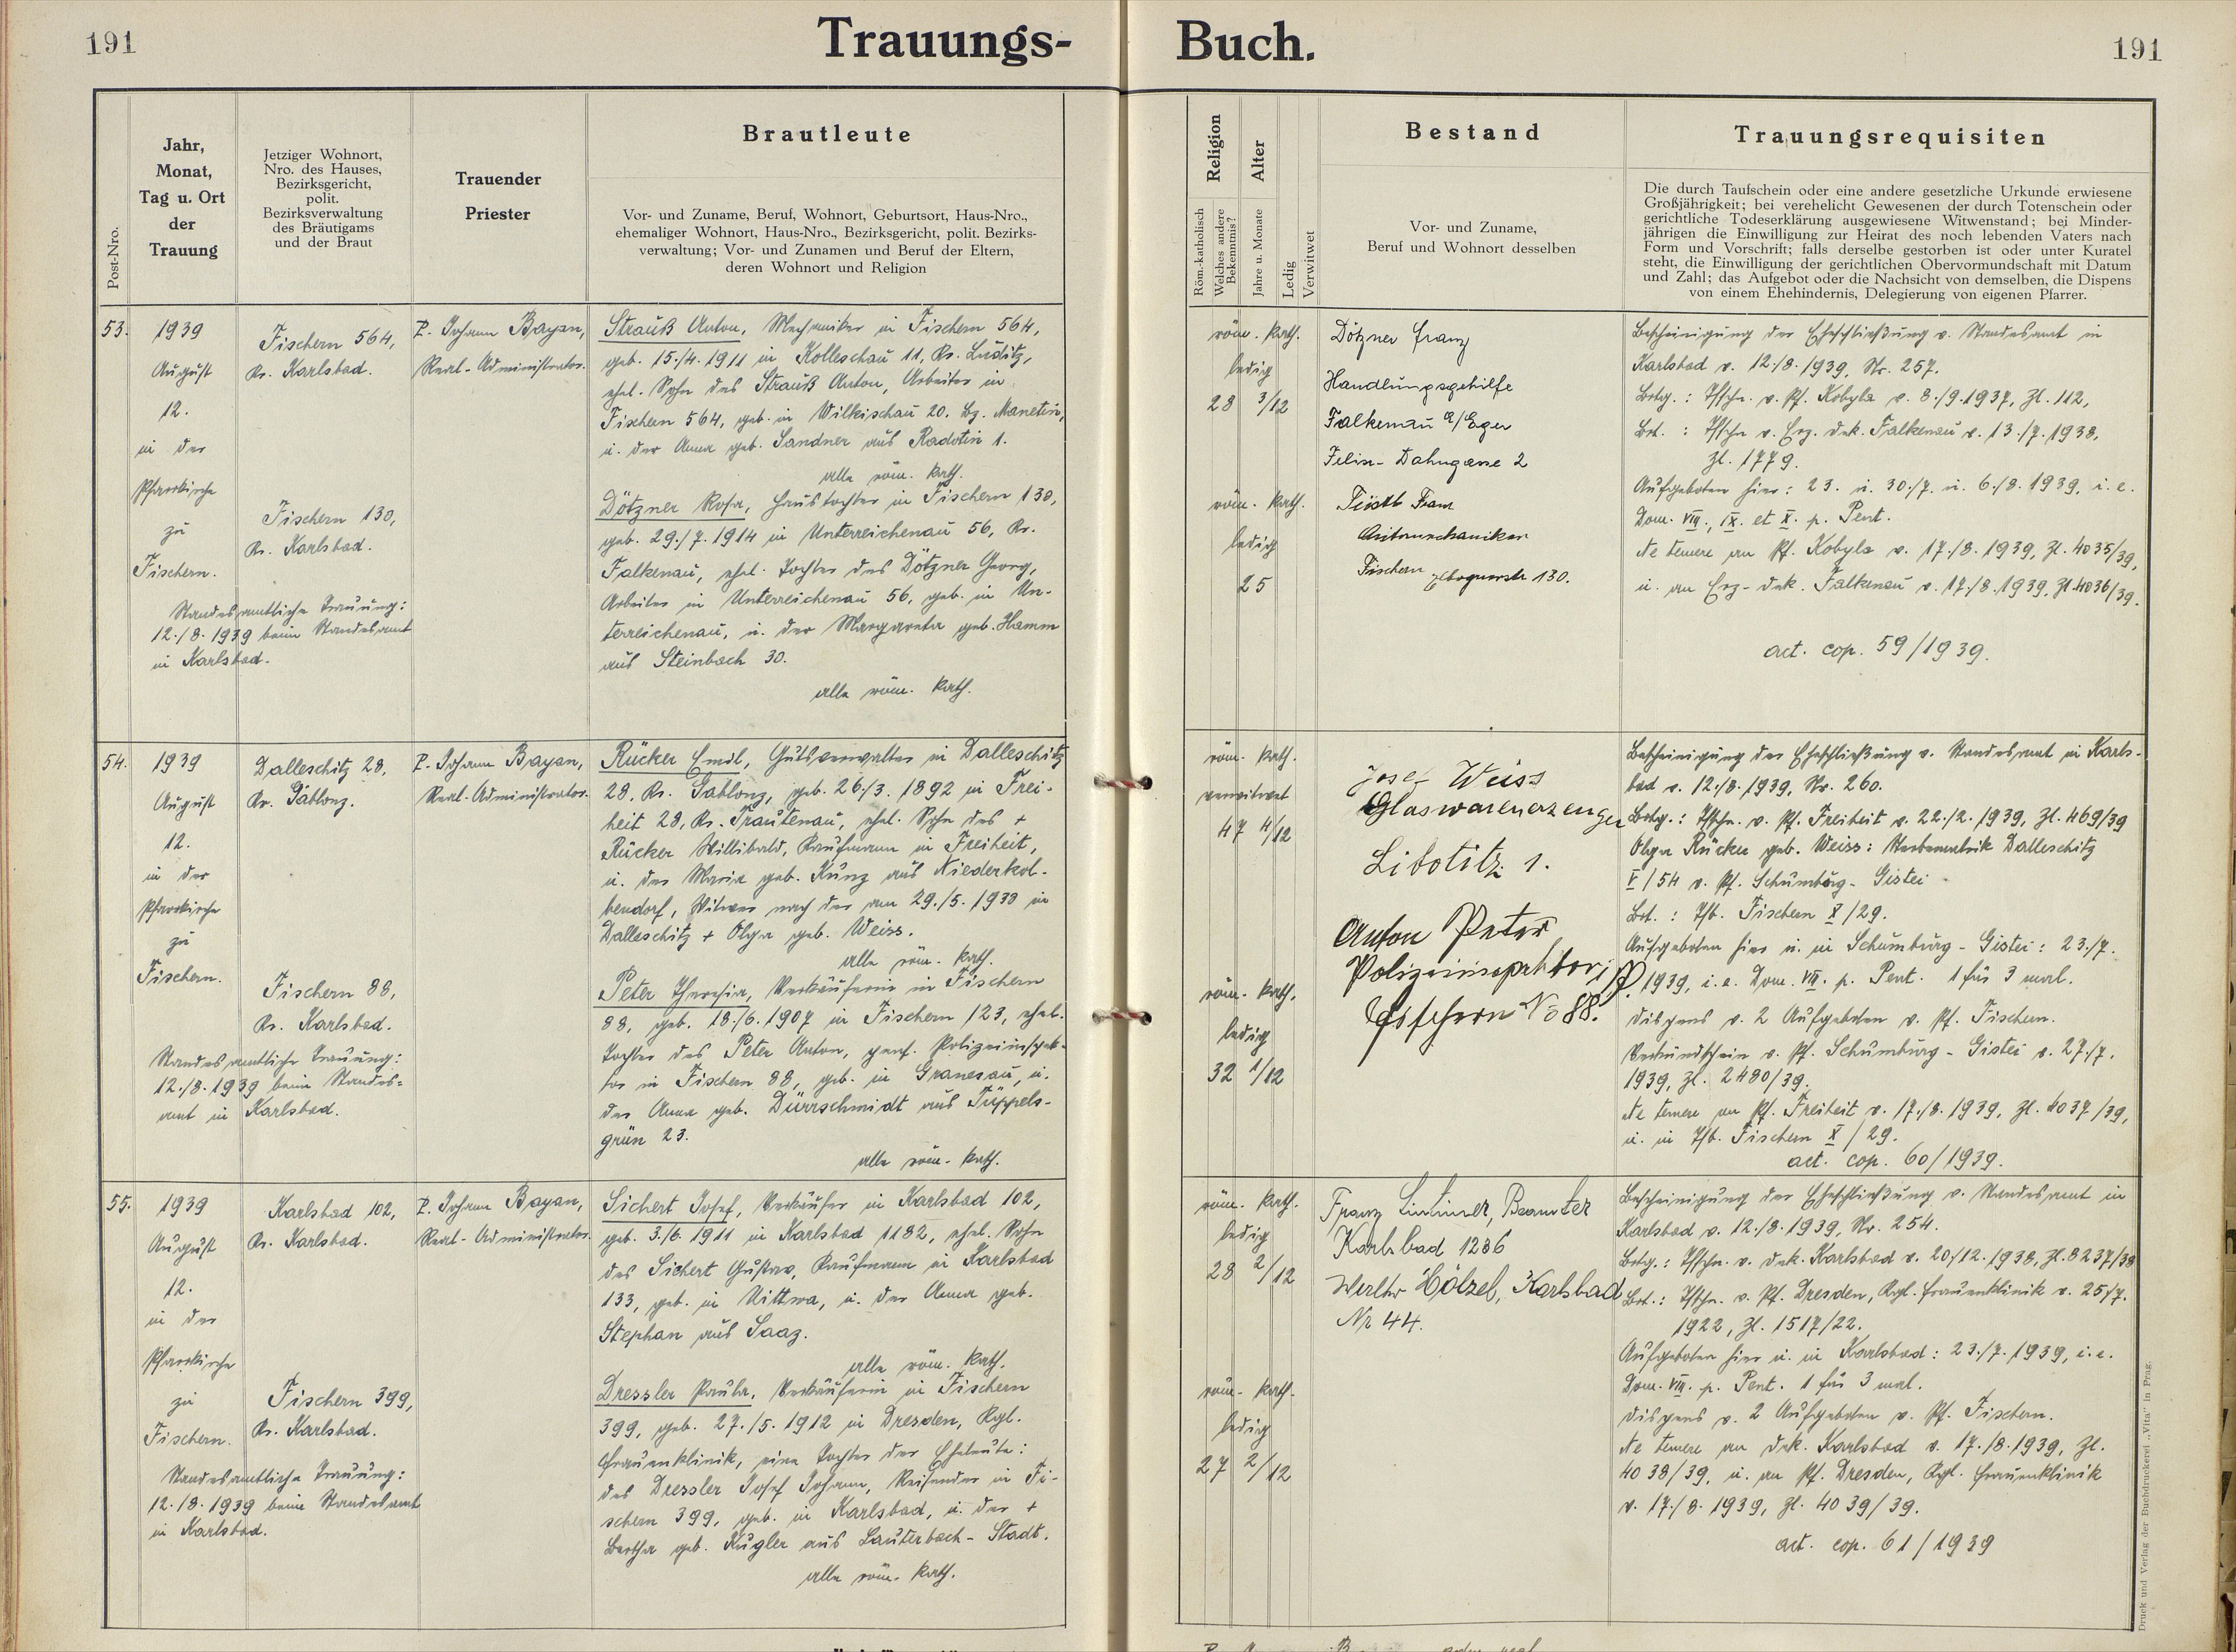 191
Trauungs-
Buch.
191
Post-Nro.
Jahr,
Monat,
Tag u. Ort
der
Trauung
Jetziger Wohnort,
Nro. des Hauses,
Bezirksgericht,
polit.
Bezirksverwaltung
des Bräutigams
und der Braut
Trauender
Priester
Brautleute
Vor- und Zuname, Beruf, Wohnort, Geburtsort, Haus-Nro.,
ehemaliger Wohnort, Haus-Nro., Bezirksgericht, polit. Bezirks-
verwaltung; Vor- und Zunamen und Beruf der Eltern,
deren Wohnort und Religion
Religion
Röm.-katholisch
Welches andere
Bekenntnis?
Alter
Jahre u. Monate
Ledig
Verwitwet
Bestand
Vor- und Zuname,
Beruf und Wohnort desselben
Trauungsrequisiten
Die durch Taufschein oder eine andere gesetzliche Urkunde erwiesene
Großjährigkeit; bei verehelicht Gewesenen der durch Totenschein oder
gerichtliche Todeserklärung ausgewiesene Witwenstand; bei Minder-
jährigen die Einwilligung zur Heirat des noch lebenden Vaters nach
Form und Vorschrift; falls derselbe gestorben ist oder unter Kuratel
steht, die Einwilligung der gerichtlichen Obervormundschaft mit Datum
und Zahl; das Aufgebot oder die Nachsicht von demselben, die Dispens
von einem Ehehindernis, Delegierung von eigenen Pfarrer.
53.
1939
August
12.
in der
Pfarrkirche
zu
Fischern.
Standesamtliche Trauung:
12./8. 1939 beim Standesamt
in Karlsbad.
Fischern 564,
Kr. Karlsbad.
Fischern 130,
Kr. Karlsbad.
P. Johann Bayan,
Real-Administrator.
Strauß Anton, Mechaniker in Fischern 564,
geb. 15./4. 1911 in Kolleschau 11, Kr. Luditz,
ehel. Sohn des Strauß Anton, Arbeiter in
Fischern 564, geb. in Wilkischau 20, Bz. Manetin,
u. der Anna geb. Sandner aus Radotin 1.
alle röm. kath.
Dötzner Rosa, Haustochter in Fischern 130,
geb. 29./7. 1914 in Unterreichenau 56, Kr.
Falkenau, ehel. Tochter des Dötzner Georg,
Arbeiter in Unterreichenau 56, geb. in Un-
terreichenau, u. der Margareta geb. Hamm
aus Steinbach 30.
alle röm. kath.
röm. kath.
ledig
28 3/12
röm. kath.
ledig
25
Dötzner Franz
Handlungsgehilfe
Falkenau a/Eger
Dahngasse 2
Franz
Automechaniker
Fischern 130.
Bescheinigung der Eheschließung v. Standesamt in
Karlsbad v. 12./8. 1939, Nr. 257.
Brtg.: Tfschn. v. Pf. Kobyla v. 8./9. 1937, Zl. 112,
Brt.: Tfschn v. Erz. Dek. Falkenau v. 13./7. 1938,
Zl. 1779.
Aufgeboten hier: 23. u. 30./7. u. 6./8. 1939, i. e.
Dom. VIII., IX. et X. p. Pent.
Ne temere an Pf. Kobyla v. 17./8. 1939, Zl. 4035/39,
u. an Erz-Dek. Falkenau v. 17./8. 1939, Zl. 4036/39.
act. cop. 59/1939.
54.
1939
August
12.
in der
Pfarrkirche
zu
Fischern.
Standesamtliche Trauung:
12./8. 1939 beim Standes-
amt in Karlsbad.
Dalleschitz 28,
Kr. Gablonz.
Fischern 88,
Kr. Karlsbad.
P. Johann Bayan,
Real-Administrator.
Rücker Emil, Gutsverwalter in Dalleschitz
28, Kr. Gablonz, geb. 26./3. 1892 in Frei-
heit 28, Kr. Trautenau, ehel. Sohn des +
Rücker Willibald, Kaufmann in Freiheit,
u. der Maria geb. Kunz aus Niederkol-
bendorf, Witwer nach der am 29./5. 1938 in
Dalleschitz + Olga geb. Weiss.
alle röm. kath.
Peter Theresia, Verkäuferin in Fischern
88, geb. 18./6. 1907 in Fischern 123, ehel.
Tochter des Peter Anton, pens. Polizeiinspek-
tor in Fischern 88, geb. in Granesau, u.
der Anna geb. Dürrschmidt aus Tüppels-
grün 23.
alle röm. kath.
röm. kath.
verwitwet
47 4/12
röm. kath.
ledig
32 1/12
Josef Weiss
Glaswarenerzeuger
Libotitz 1.
Anton Peter
Polizeiinspektor i. P.
Fischern No 88.
Bescheinigung der Eheschließung v. Standesamt in Karls-
bad v. 12./8. 1939, Nr. 260.
Brtg.: Tfschn. v. Pf. Freiheit v. 22./2. 1939, Zl. 469/39
Olga Rücker geb. Weiss: Sterbematrik Dalleschitz
V/54 v. Pf. Schumburg-Gistei
Brt.: Tfb. Fischern X/29.
Aufgeboten hier u. in Schumburg-Gistei: 23./7.
1939, i. e. Dom. VIII. p. Pent. 1 für 3 mal.
Dispens v. 2 Aufgeboten v. Pf. Fischern.
Verkündschein v. Pf. Schumburg-Gistei v. 27./7.
1939, Zl. 2480/39.
Ne temere an Pf. Freiheit v. 17./8. 1939, Zl. 4037/39,
u. in Tfb. Fischern X/29.
act. cop. 60/1939.
55.
1939
August
12.
in der
Pfarrkirche
zu
Fischern.
Standesamtliche Trauung:
12./8. 1939 beim Standesamt
in Karlsbad.
Karlsbad 102,
Kr. Karlsbad.
Fischern 399,
Kr. Karlsbad.
P. Johann Bayan,
Real-Administrator.
Sichert Josef, Verkäufer in Karlsbad 102,
geb. 3./6. 1911 in Karlsbad 1182, ehel. Sohn
des Sichert Gustav, Kaufmann in Karlsbad
133, geb. in Uittwa, u. der Anna geb.
Stephan aus Saaz.
alle röm. kath.
Dressler Paula, Verkäuferin in Fischern
399, geb. 27./5. 1912 in Dresden, Kgl.
Frauenklinik, eine Tochter der Eheleute:
des Dressler Josef Johann, Reisender in Fi-
schern 399, geb. in Karlsbad, u. der +
Bertha geb. Kugler aus Lauterbach-Stadt.
alle röm. kath.
röm. kath.
ledig
28 2/12
röm. kath.
ledig
27 2/12
Franz Beamter
Karlsbad 1286
Walter Hölzel, Karlsbad
Nr 44.
Bescheinigung der Eheschließung v. Standesamt in
Karlsbad v. 12./8. 1939, Nr. 254.
Brtg.: Tfschn. v. Dek. Karlsbad v. 20./12. 1938, Zl. 8237/38
Brt.: Tfschn. v. Pf. Dresden, Kgl. Frauenklinik v. 25./7.
1922, Zl. 1517/22.
Aufgeboten hier u. in Karlsbad: 23./7. 1939, i. e.
Dom. VIII. p. Pent. 1 für 3 mal.
Dispens v. 2 Aufgeboten v. Pf. Fischern.
Ne temere an Dek. Karlsbad v. 17./8. 1939, Zl.
4038/39, u. an Pf. Dresden, Kgl. Frauenklinik
v. 17./8. 1939, Zl. 4039/39.
act. cop. 61/1939
Druck und Verlag der Buchdruckerei „Vita" in Prag.